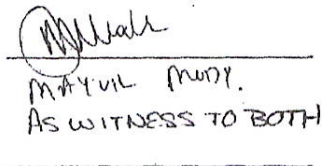 MAYUR MODY.
AS WITNESS TO BOTH